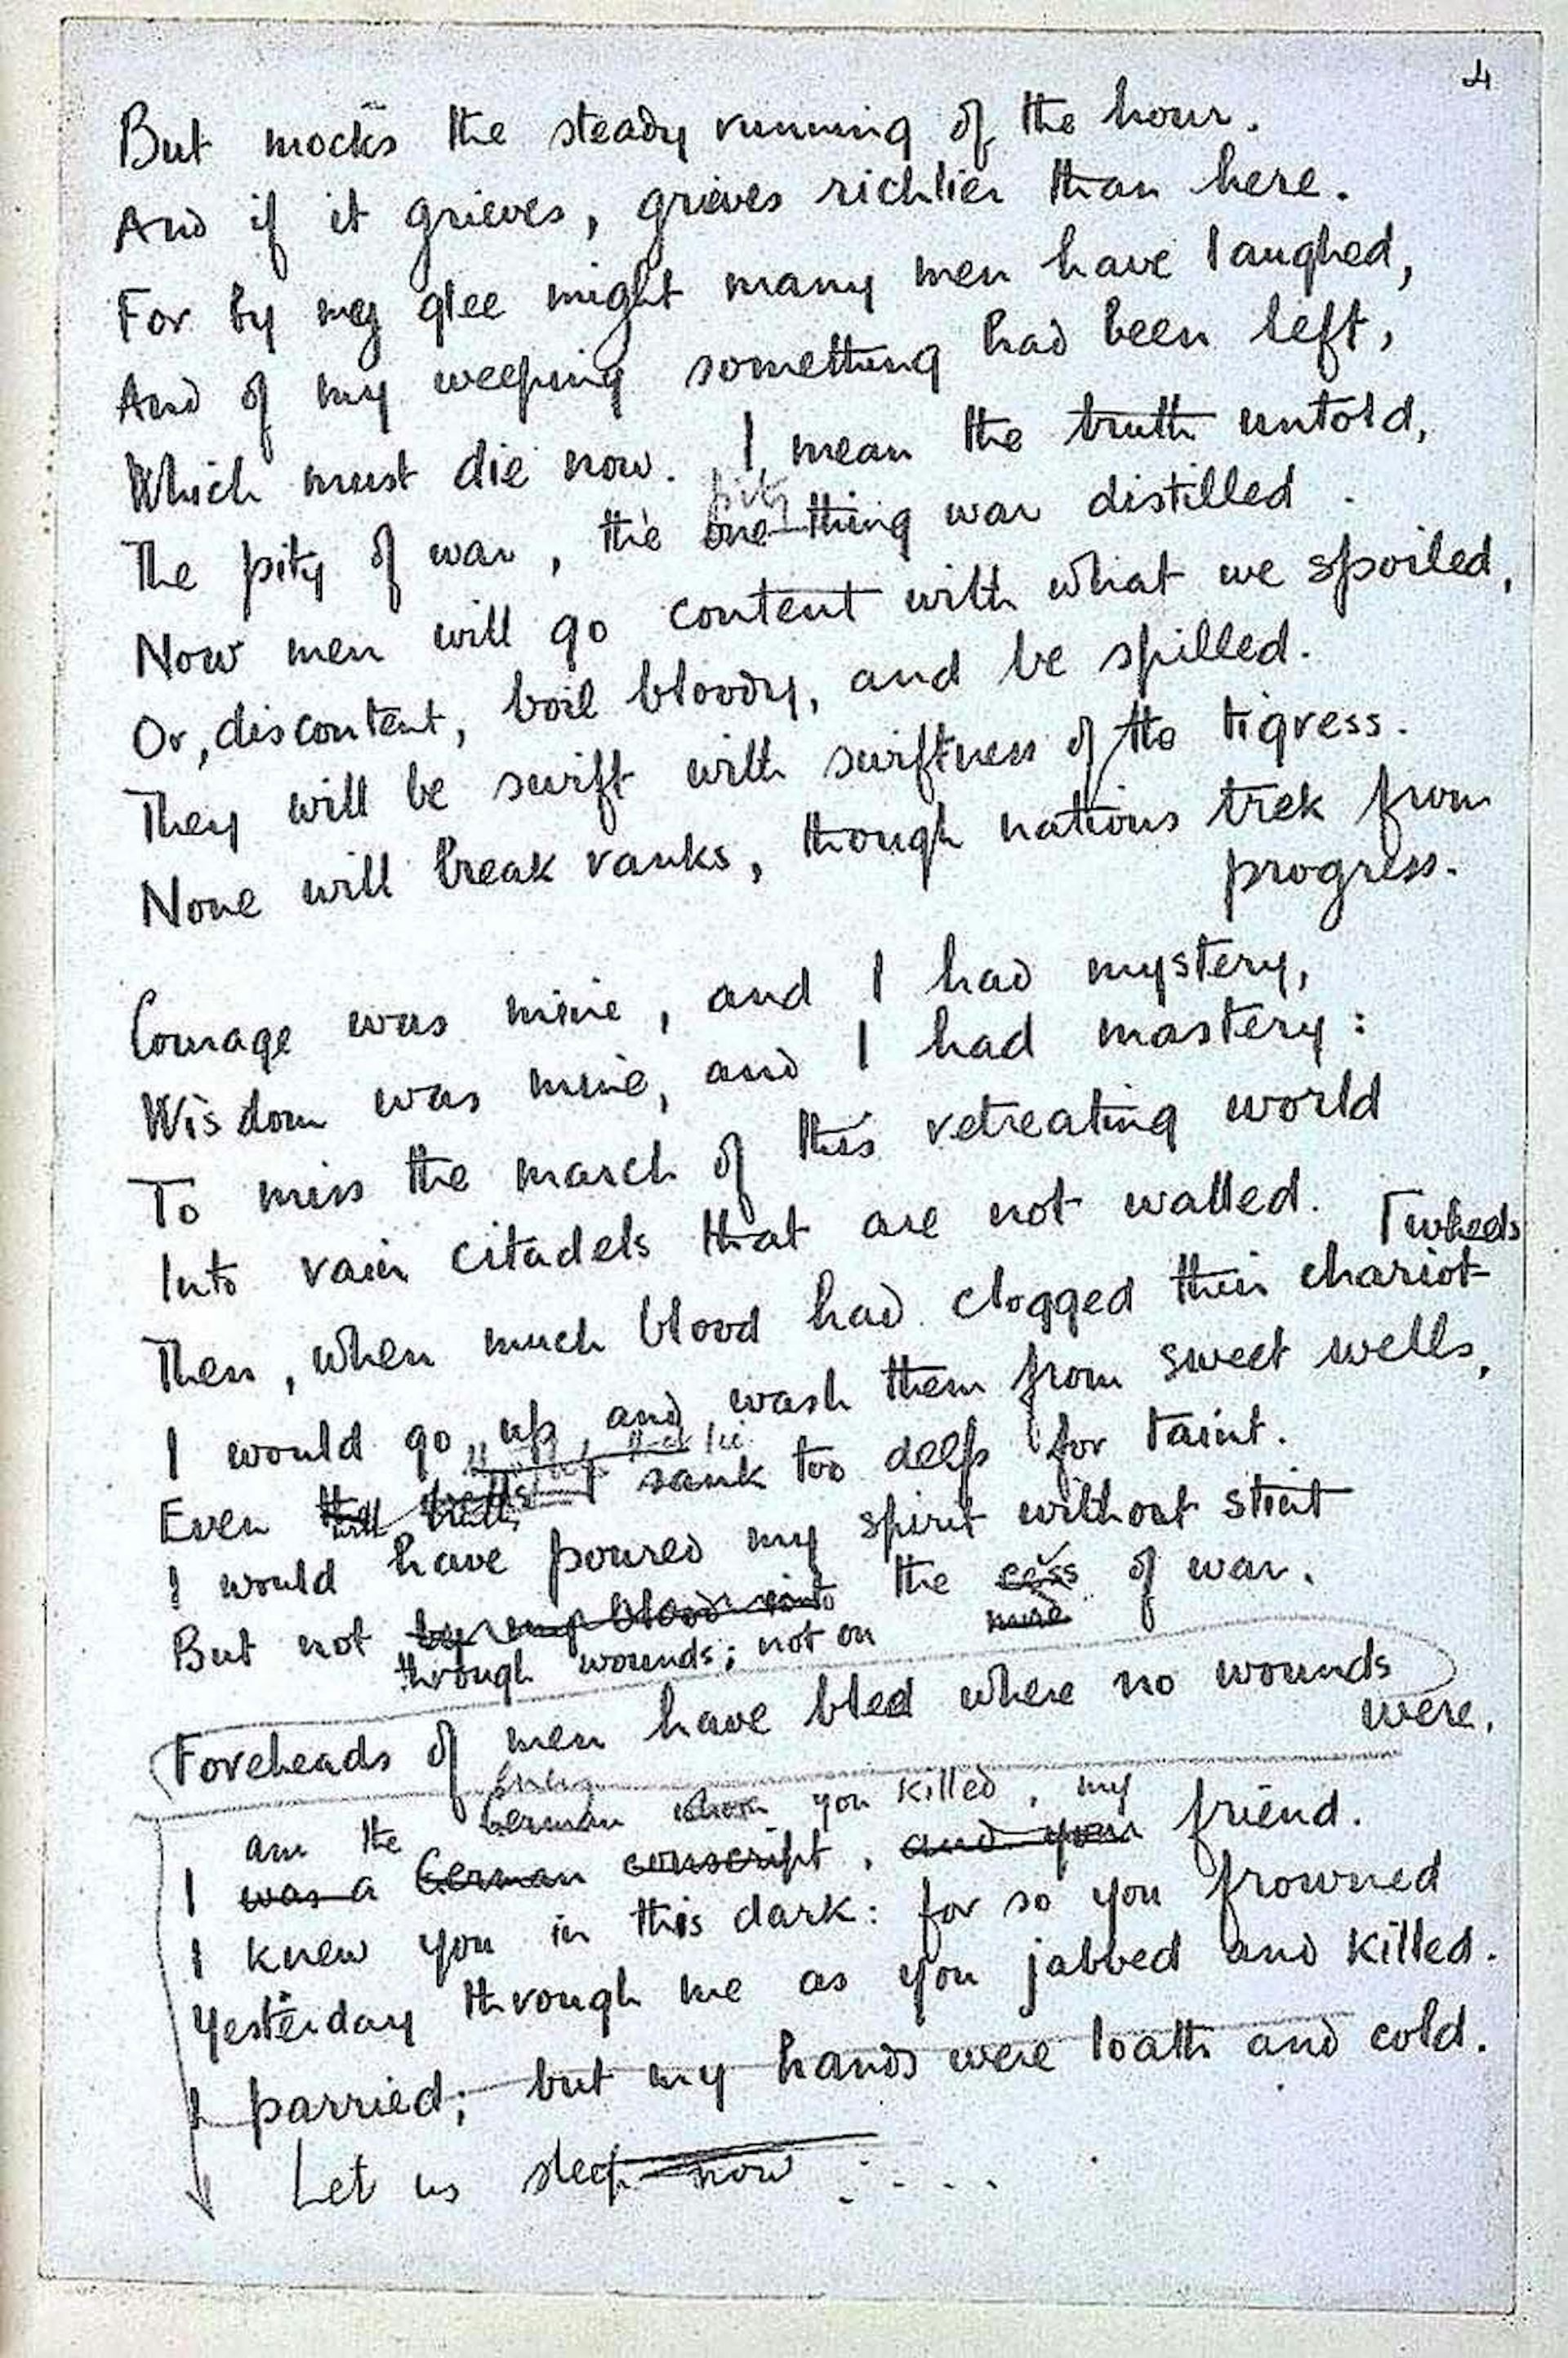 4
But mocks the steady running of the hour.
And if it grieves, grieves richlier than here.
For by my glee might many men have laughed,
And of my weeping something had been left,
Which must die now. I mean the truth untold,
pity
The pity of war, the one thing war distilled.
Now men will go content with what we spoiled,
Or, discontent, boil bloody, and be spilled.
They will be swift with swiftness of the tigress.
None will break ranks, though nations trek from
progress.
Courage was mine, and I had mystery,
Wisdom was mine, and I had mastery:
To miss the march of this retreating world
Into vain citadels that are not walled.
wheels
Then, when much blood had clogged their chariot-
I would go up and wash them from sweet wells,
Even sank too deep for taint.
I would have poured my spirit without stint
But not by my blood into the cess of war.
through wounds; not on
Foreheads of men have bled where no wounds
were.
enemy
am the German whom you killed, my
I was a German conscript, and your friend.
I knew you in this dark: for so you frowned
Yesterday through me as you jabbed and killed.
I parried; but my hands were loath and cold.
Let us sleep now .....